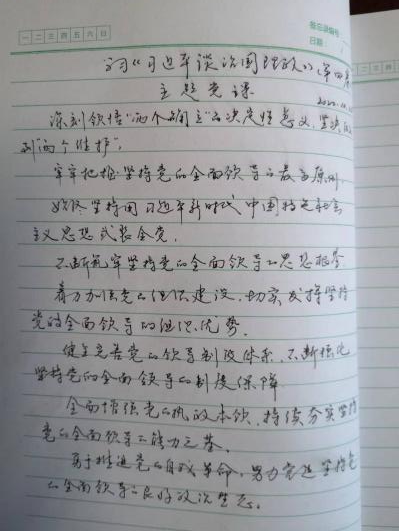 一 二 三 四 五 六 日
备忘录编号:
日期:
学习《习近平谈治国理政》(第四卷
主题党课
深刻领悟"两个确立"的决定性意义,坚决做
到"两个维护",
牢牢把握坚持党的全面领导的最高原则
始终坚持用习近平新时代中国特色社会
主义思想武装全党,
不断筑牢坚持党的全面领导的思想根基
着力加强党的组织建设,切实发挥坚持
党的全面领导的组织优势.
健全完善党的领导制度体系,不断强化
坚持党的全面领导的制度保障
全面增强党的执政本领,持续夯实坚持
党的全面领导的能力之基.
勇于推进党的自我革命,努力营造坚持党
的全面领导的良好政治生态.